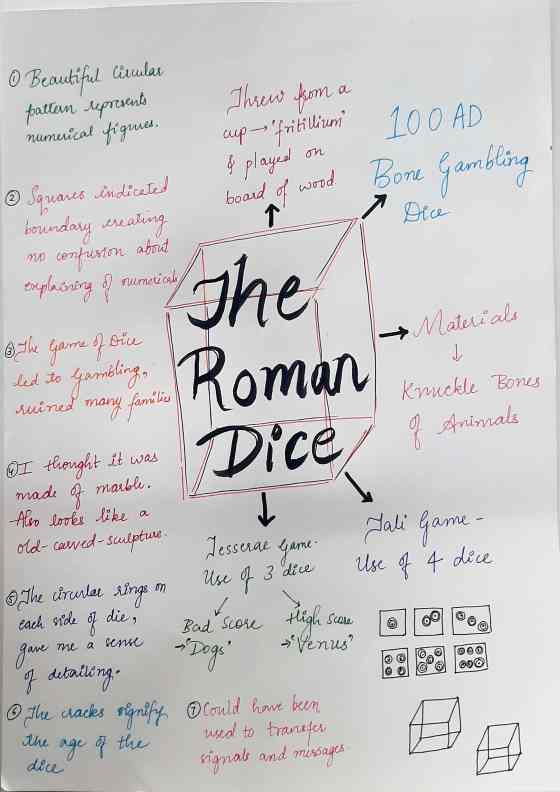 ① Beautiful Circular
pattern represents
numerical figures.
② Squares indicated
boundary creating
no confusion about
explaining of numericals
③ The Game of Dice
led to Gambling,
ruined many families
④ I thought it was
made of marble.
Also looks like a
old-carved-sculpture.
⑤ The circular rings on
each side of die,
gave me a sense
of detailing.
⑥ The cracks signify
the age of the
dice
Threw from a
cup → 'fritillium'
& played on
board of wood
100 AD
Bone Gambling
Dice
The
Roman
Dice
→ Materials
↓
Knuckle Bones
of Animals
Tesserae Game-
Use of 3 dice
Bad Score
→ "Dogs"
High Score
→ "Venus"
Tali Game -
Use of 4 dice
⑦ Could have been
used to transfer
signals and messages.